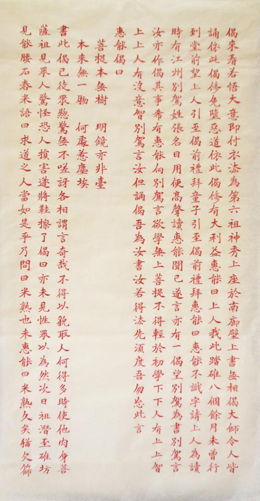 偈來看若悟大意即付衣法為第六祖神秀上座於南廊壁上書無相偈大師令人皆
誦依此偈修免墮惡道依此偈修有大利益惠能曰上人我此踏碓八個餘月未曾行
到堂前望上人引至偈前禮拜童子引至偈前禮拜惠能曰惠能不識字請上人為讀
時有江州別駕姓張名日用便高聲讀惠能聞已遂言亦有一偈望別駕為書別駕言
汝亦作偈其事希有惠能向別駕言欲學無上菩提不得輕於初學下下人有上上智
上上人有沒意智別駕言汝但誦偈吾為汝書汝若得法先須度吾勿忘此言
惠能偈曰
菩提本無樹 明鏡亦非臺
本來無一物 何處惹塵埃
書此偈已徒衆總驚無不嗟訝各相謂言奇哉不得以貌取人何得多時使他肉身菩
薩祖見衆人驚怪恐人損害遂將鞋擦了偈曰亦未見性衆以為然次日祖潛至碓坊
見能腰石舂米語曰求道之人當如是乎乃問曰米熟也未惠能曰米熟久矣猶欠篩